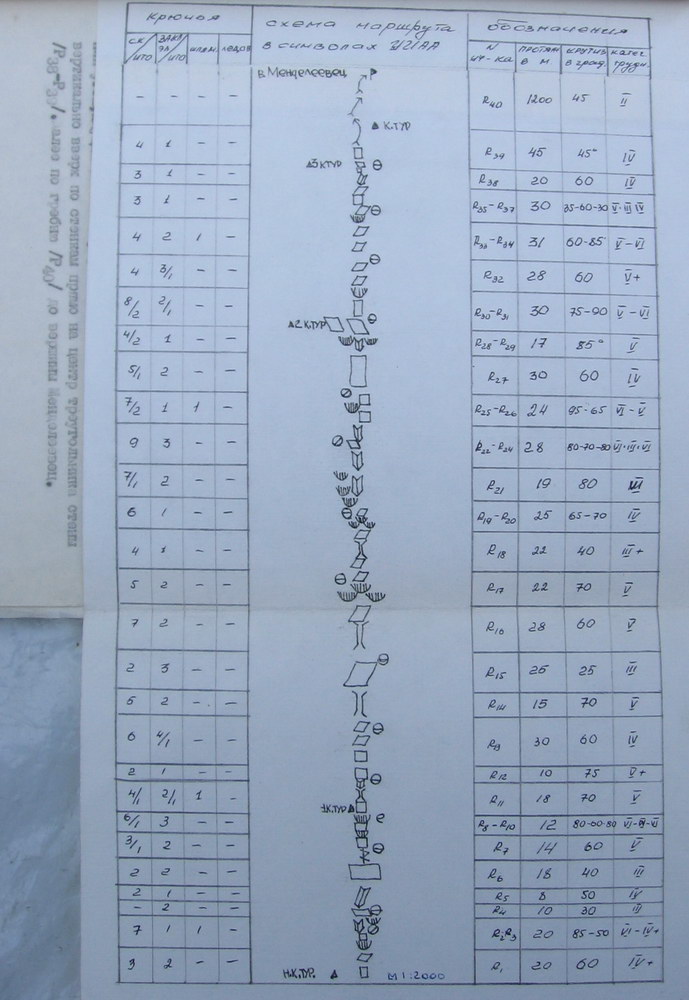 крючья
схема маршрута
в символах УИАА
обозначения
ск/што
закл/што
шлям.
ледов
N уч-ка
протяж в м
крутиз в град.
катег трудн.
в. Менделеевец
– – – – R40 1200 45 II
К.ТУР
4 1 – – R39 45 45° IV
△3 КТУР
3 1 – – R38 20 60 IV
3 1 – – R35-R37 30 35-60-30 V-III IV
4 2 1 – R33-R34 31 60-85 V-VI
4 3/1 – – R32 28 60 V+
8/2 2/1 – – R30-R31 30 75-90 V-VI
△2 К.ТУР
4/2 1 – – R28-R29 17 85° V
5/1 2 – – R27 30 60 IV
7/2 1 1 – R25-R26 24 95-65 VI-V
9 3 – – R22-R24 28 80-70-80 VI-III-VI
7/1 2 – – R21 19 80 III
6 1 – – R19-R20 25 65-70 IV
4 1 – – R18 22 40 III+
5 2 – – R17 22 70 V
7 2 – – R16 28 60 V
2 3 – – R15 25 25 III
5 2 – – R14 15 70 V
6 4/1 – – R13 30 60 IV
2 1 – – R12 10 75 V+
4/1 2/1 1 – R11 18 70 V
1К.ТУР
6/1 3 – – R8-R10 12 80-60-80 VI-IV-VI
3/1 2 – – R7 14 60 V
2 2 – – R6 18 40 III
2 1 – – R5 8 50 IV
– 2 – – R4 10 30 III
7 1 1 – R2-R3 20 85-50 VI-IV+
3 2 – – R1 20 60 IV+
Н.К.ТУР. △
М 1:2000
вертикально вверх по стенкам прямо на центр треугольника стены
/Р38-Р39/. Далее по гребню /Р40/ до вершины Менделеевец.